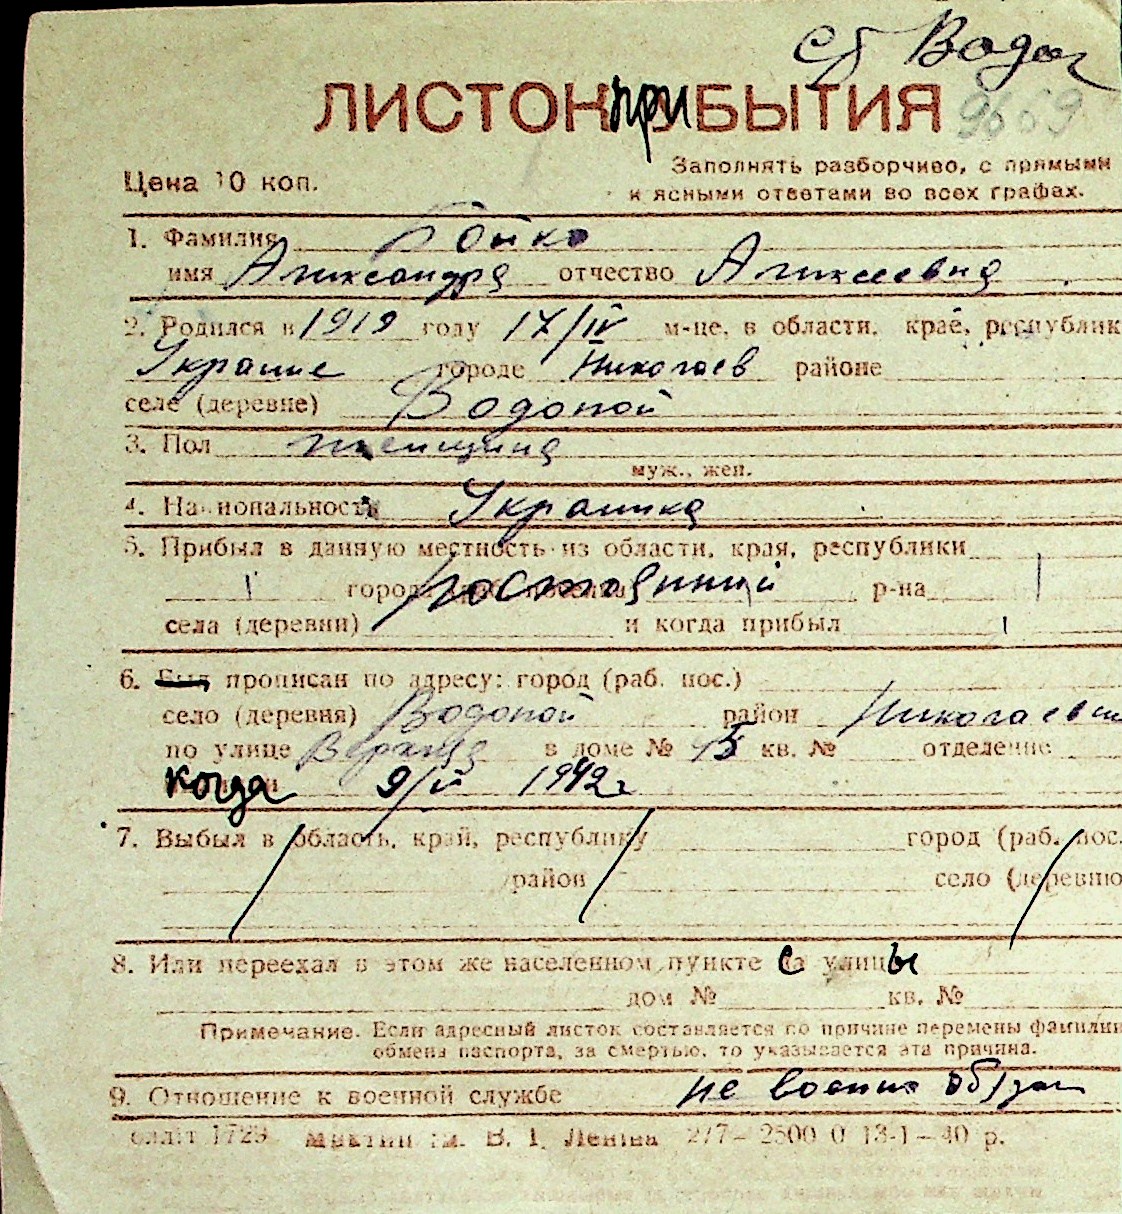 сб Водоп
ЛИСТОК приБЫТИЯ 9669
Цена 10 коп.
Заполнять разборчиво, с прямыми
и ясными ответами во всех графах.
1. Фамилия Бойко
имя Александра отчество Алексеевна
2. Родился в 1919 году 17/IV м-це, в области, крае, республик
Украине городе Николаев районе
селе (деревне) Водопой
3. Пол женщина
муж., жен.
4. Национальность Украинка
5. Прибыл в данную местность из области, края, республики
города постоянный р-на
села (деревни) и когда прибыл
6. прописан по адресу: город (раб. пос.)
село (деревня) Водопой район Николаевск
по улице в доме № кв. № отделение
когда 9/V 1942 г
7. Выбыл в область, край, республику город (раб. пос.
район село (деревню
8. Или переехал в этом же населенном пункте с улицы
дом № кв. №
Примечание. Если адресный листок составляется по причине перемены фамилии
обмена паспорта, за смертью, то указывается эта причина.
9. Отношение к военной службе не военно обязан
1729 им. В. І. Леніна 277–2500 0 13-1–40 р.